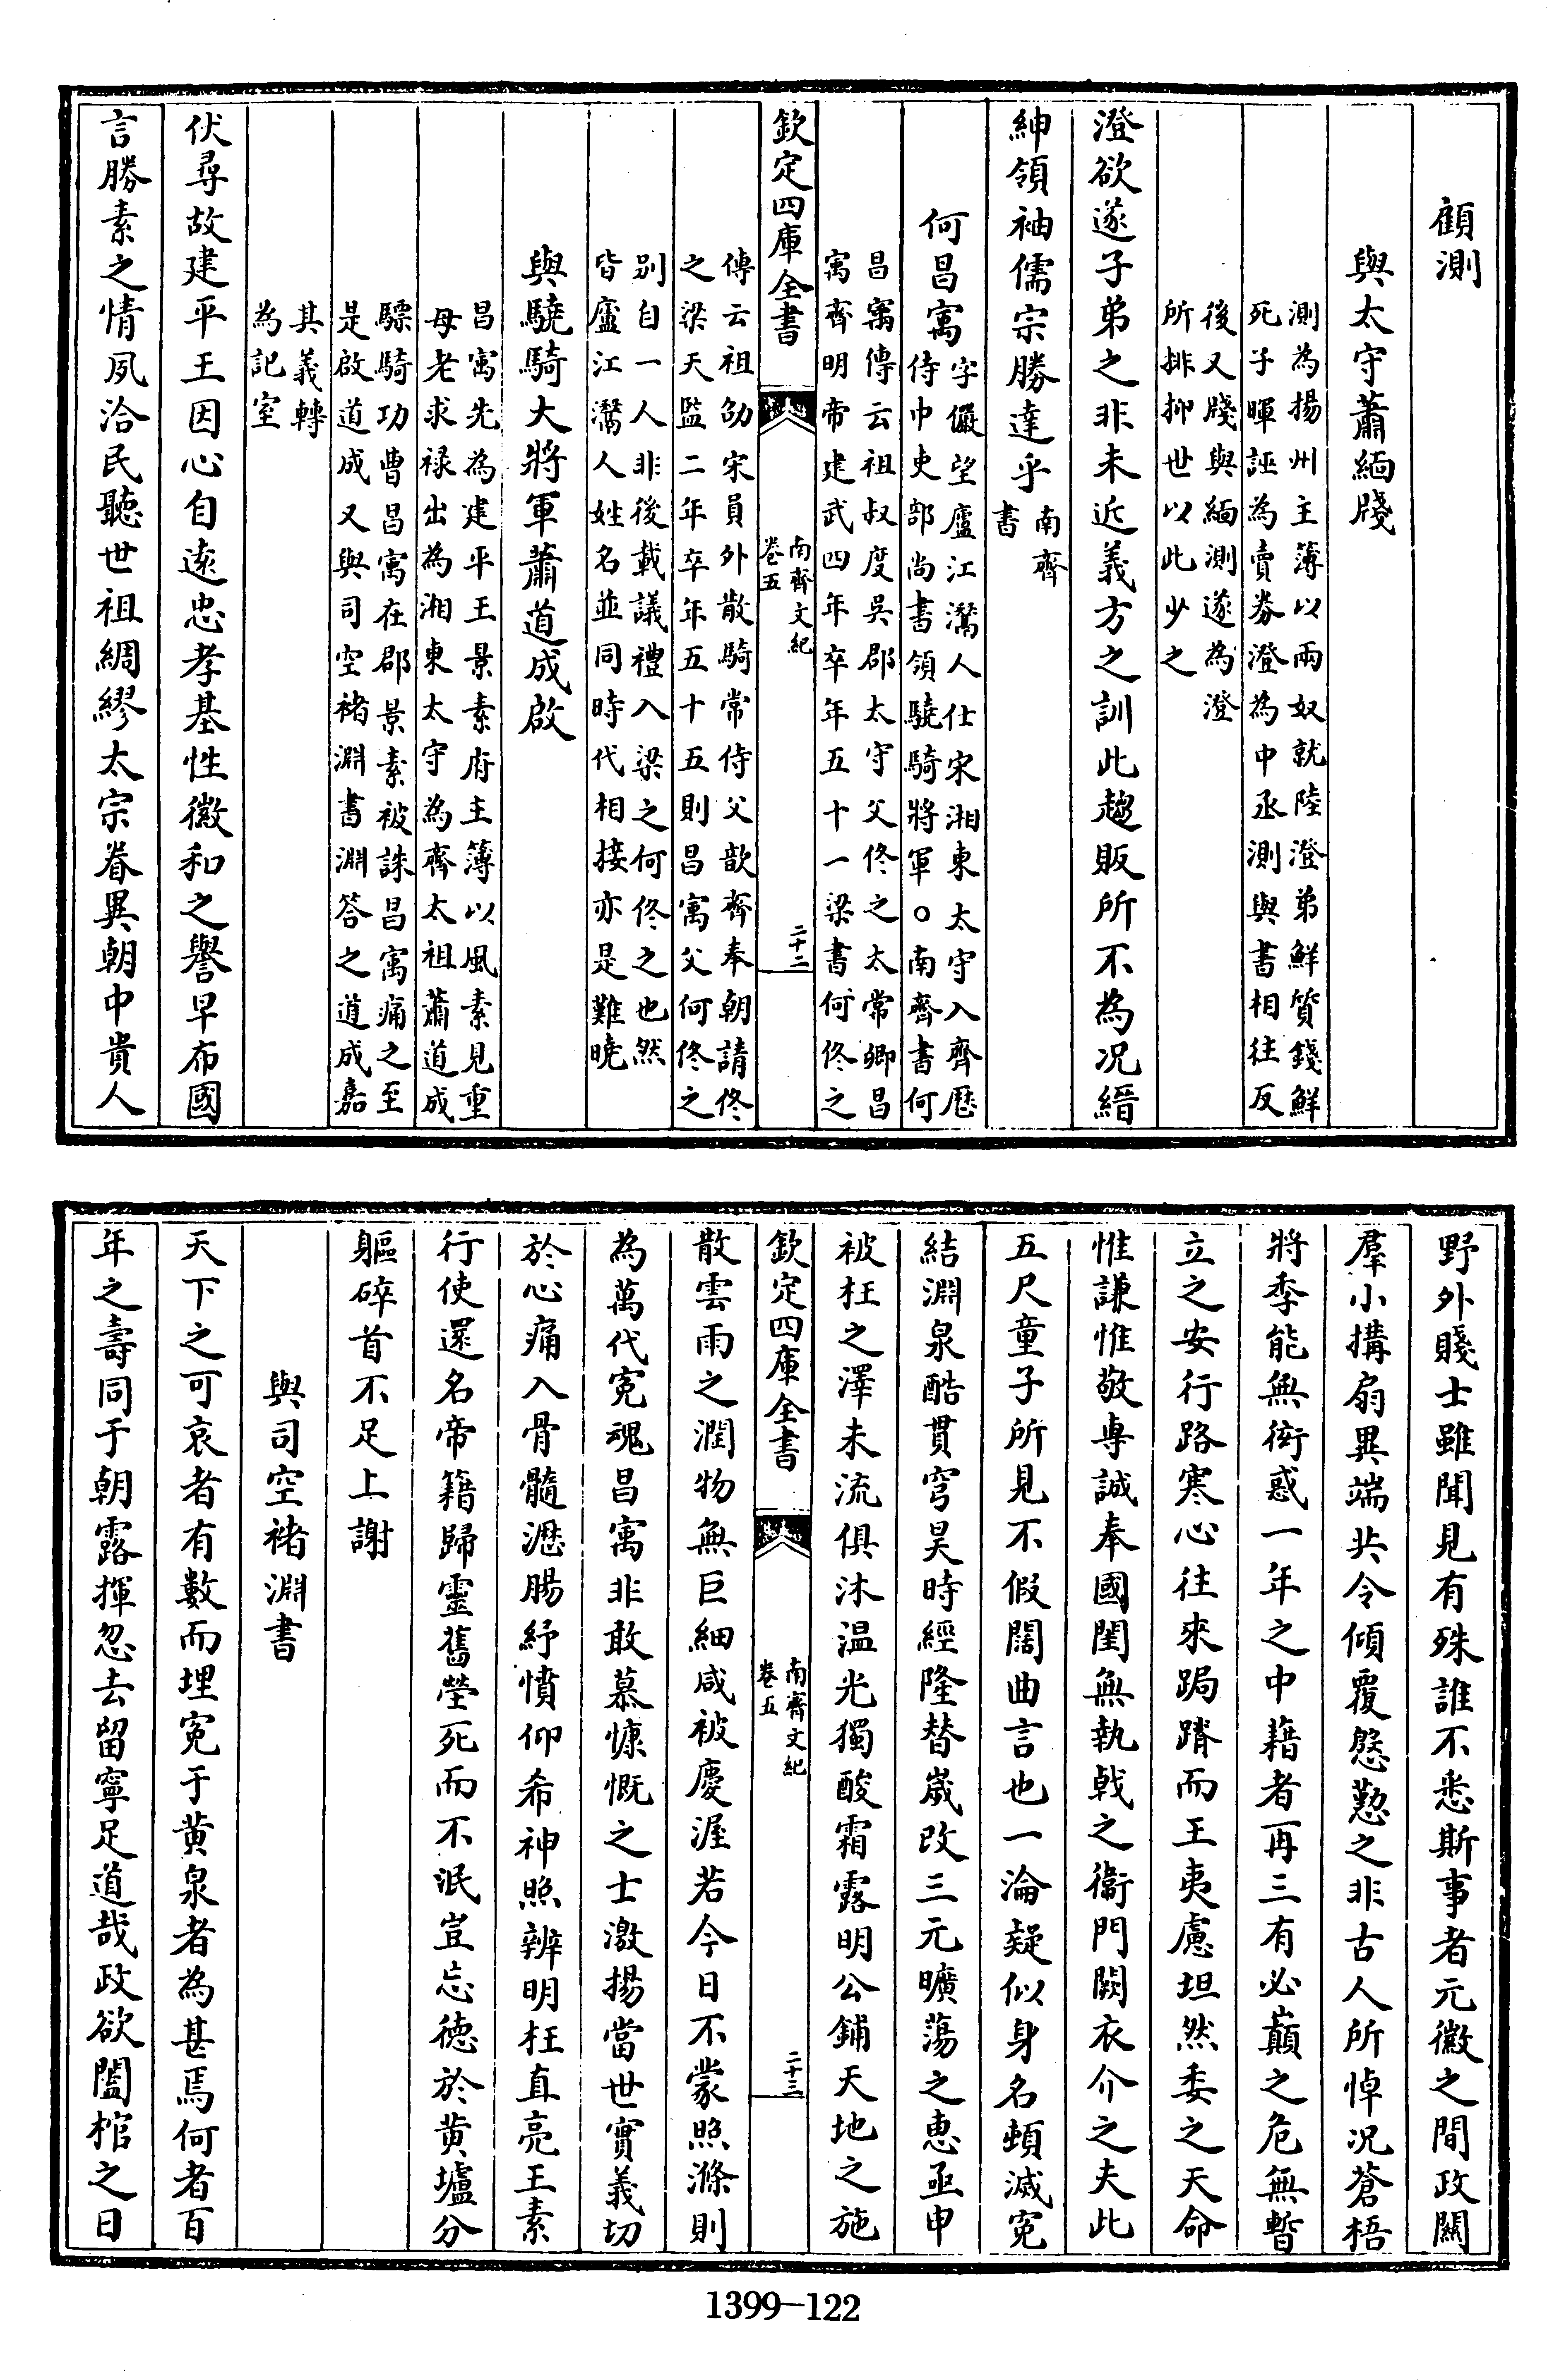 顧測
與太守蕭緬牋
測為揚州主簿以兩奴就陸澄弟鮮質錢鮮
死子暉誣為賣券澄為中丞測與書相往反
後又牋與緬測遂為澄
所排抑世以此少之
澄欲遂子弟之非未近義方之訓此趨販所不為况縉
紳領袖儒宗勝達乎
南齊
書
何昌㝢
字儼望廬江灊人仕宋湘東太守入齊歷
侍中吏部尚書領驍騎將軍○南齊書何
昌㝢傳云祖叔度吳郡太守父佟之太常卿昌
㝢齊明帝建武四年卒年五十一梁書何佟之
欽定四庫全書
南齊文紀
卷五
二十二
傳云祖劭宋員外散騎常侍父歆齊奉朝請佟
之梁天監二年卒年五十五則昌㝢父何佟之
别自一人非後載議禮入梁之何佟之也然
皆廬江灊人姓名並同時代相接亦是難曉
與驍騎大將軍蕭道成啟
昌㝢先為建平王景素府主簿以風素見重
母老求禄出為湘東太守為齊太祖蕭道成
驃騎功曹昌㝢在郡景素被誅昌㝢痛之至
是啟道成又與司空褚淵書淵答之道成嘉
其義轉
為記室
伏尋故建平王因心自逺忠孝基性徽和之譽早布國
言勝素之情夙洽民聽世祖綢繆太宗眷異朝中貴人
野外賤士雖聞見有殊誰不悉斯事者元徽之間政闗
羣小搆扇異端共令傾覆慇懃之非古人所悼况蒼梧
將季能無衒惑一年之中藉者再三有必巔之危無暫
立之安行路寒心往來跼蹐而王夷慮坦然委之天命
惟謙惟敬專誠奉國閨無執戟之衞門闕衣介之夫此
五尺童子所見不假闊曲言也一淪疑似身名頓滅寃
結淵泉酷貫穹昊時經隆替嵗改三元曠蕩之惠亟申
被枉之澤未流俱沐温光獨酸霜露明公鋪天地之施
欽定四庫全書
南齊文紀
卷五
二十三
散雲雨之潤物無巨細咸被慶渥若今日不蒙照滌則
為萬代寃魂昌㝢非敢慕慷慨之士激揚當世實義切
於心痛入骨髓瀝腸紓憤仰希神照辨明枉直亮王素
行使還名帝籍歸靈舊塋死而不泯豈忘德於黄壚分
軀碎首不足上謝
與司空褚淵書
天下之可哀者有數而埋寃于黄泉者為甚焉何者百
年之壽同于朝露揮忽去留寜足道哉政欲闔棺之日
1399—122